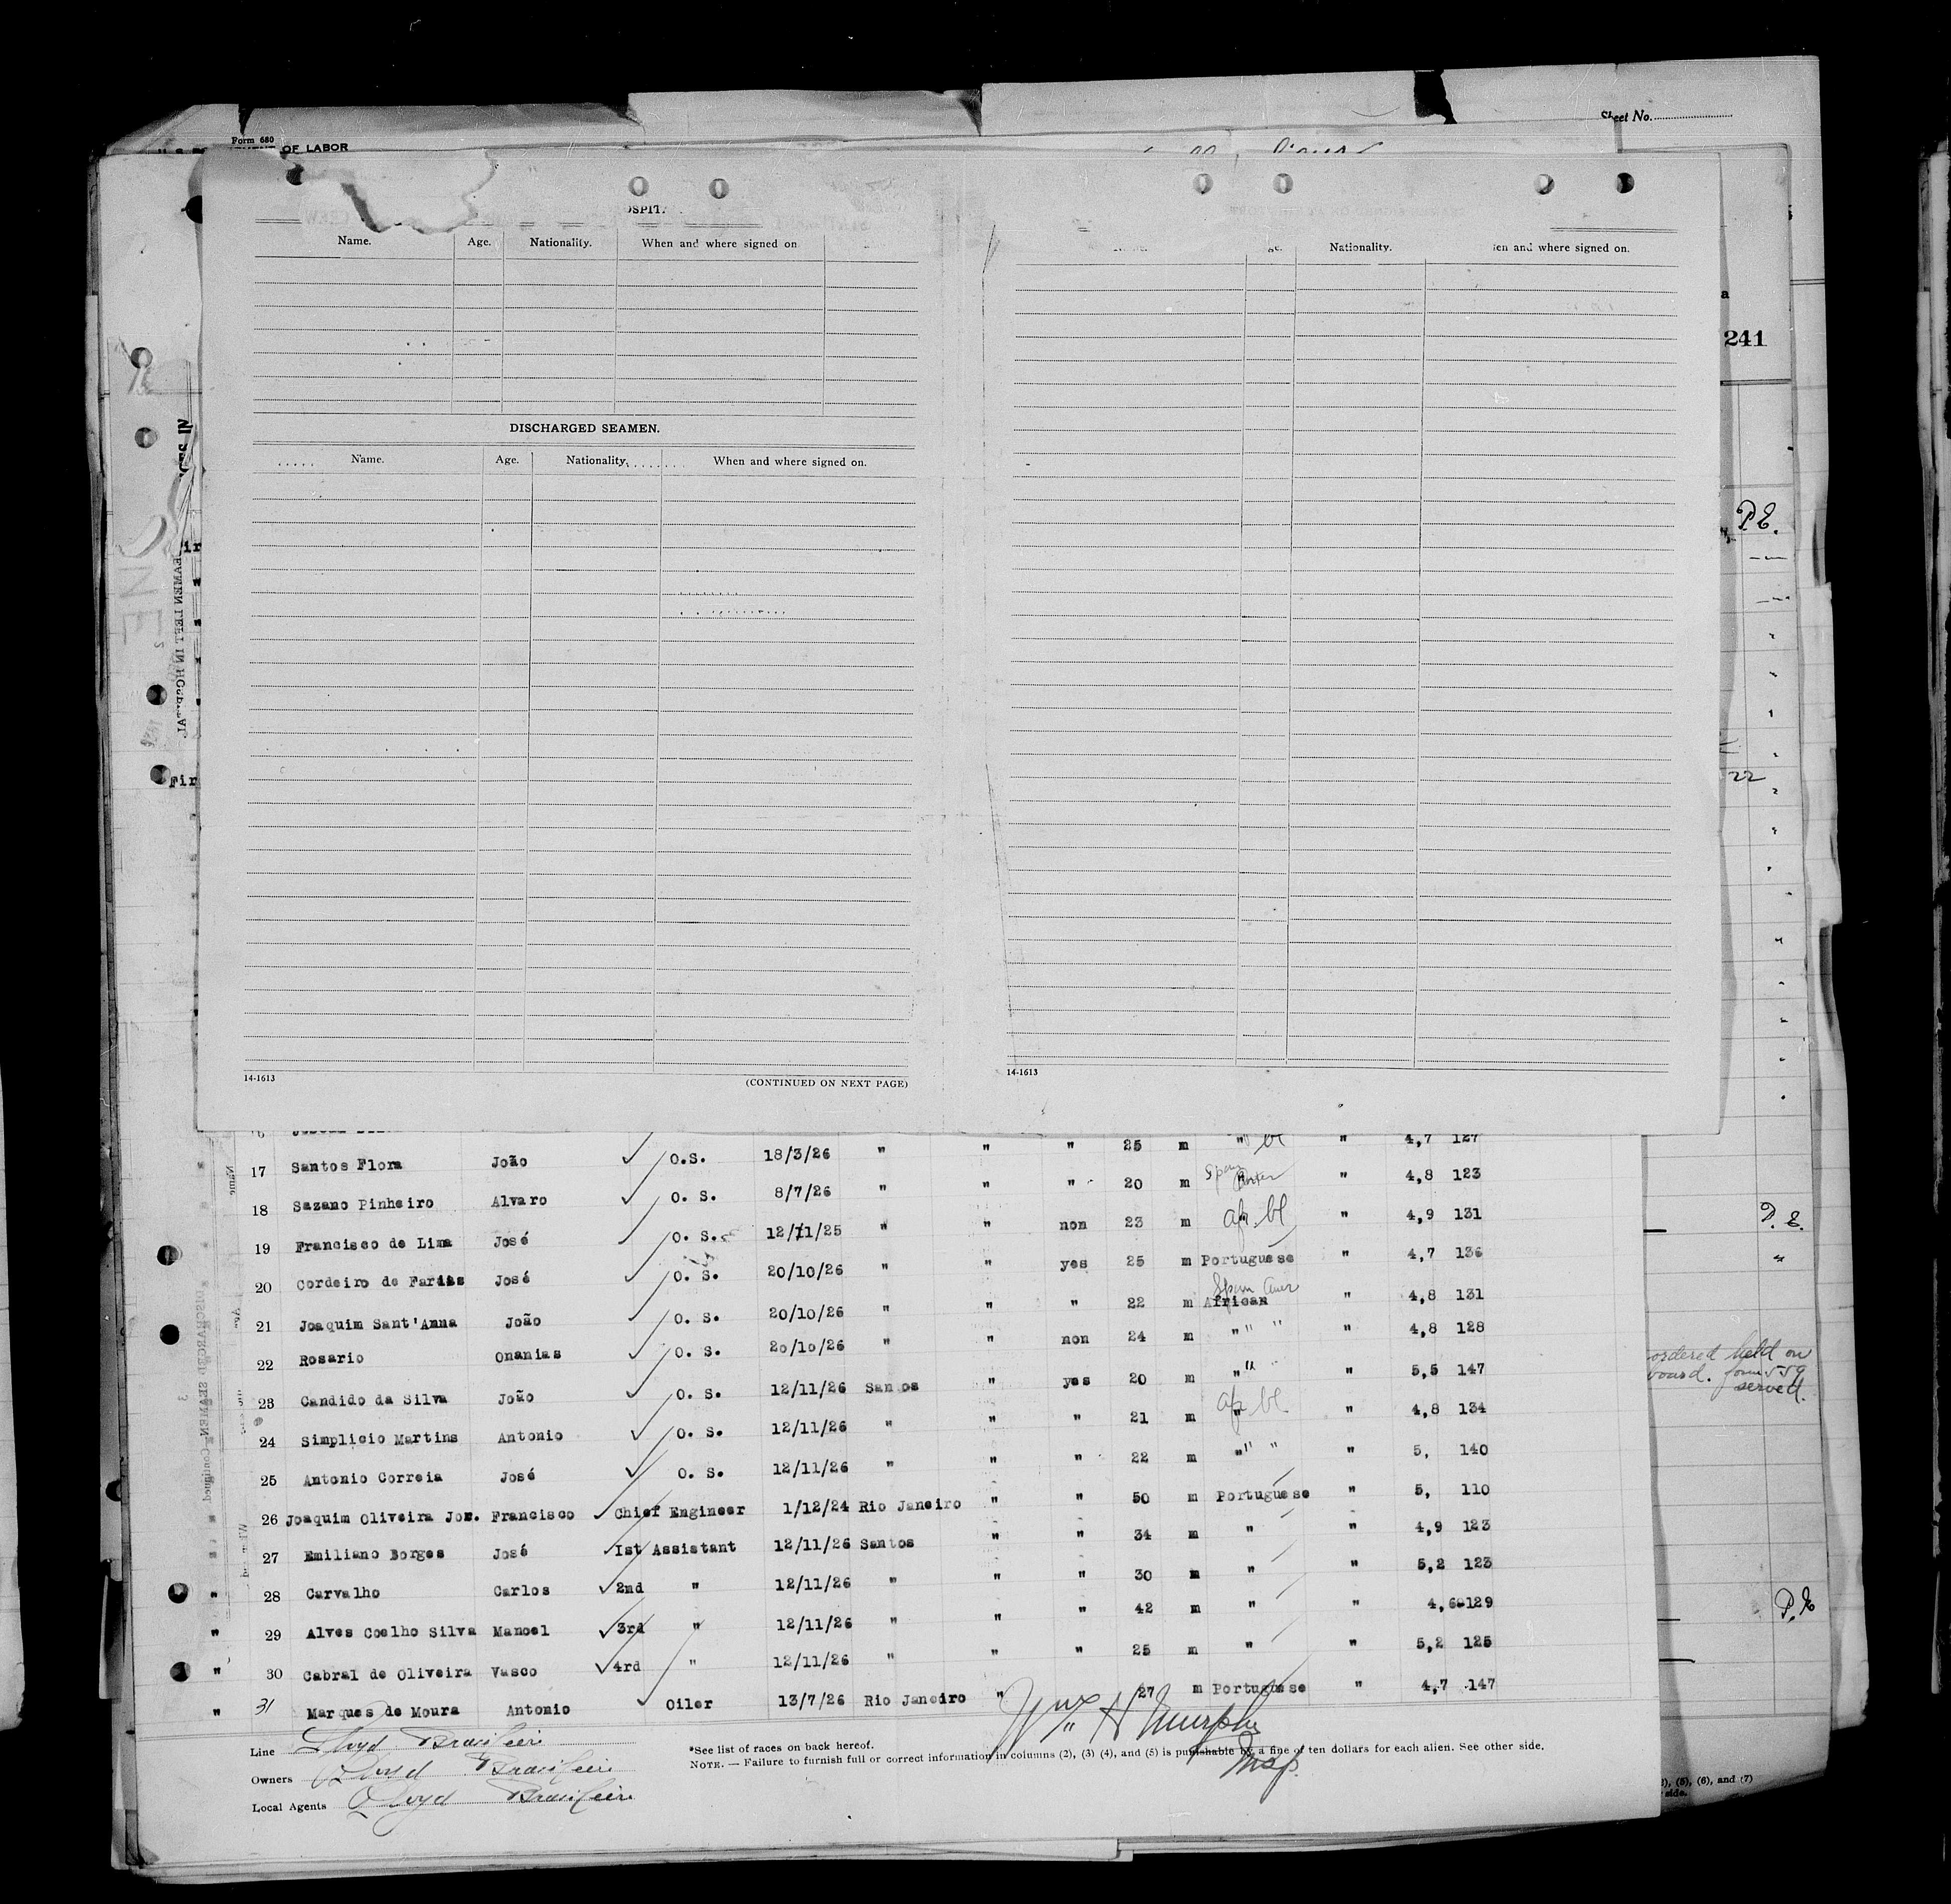 Sheet No.
Form 680
OF LABOR
Name. Age. Nationality. When and where signed on
Nationality. and where signed on.
241
DISCHARGED SEAMEN.
Name. Age. Nationality. When and where signed on.
P.E.
22
14-1613 (CONTINUED ON NEXT PAGE)
14-1613
" " 25 m " bl " 4,7 127
17 Santos Flora João ✓ O.S. 18/3/26 " " " 20 m Span " 4,8 123
18 Sazano Pinheiro Alvaro ✓ O. S. 8/7/26 " " non 23 m " afr. bl " 4,9 131
19 Francisco de Lima José ✓ O. S. 12/11/25 " " yes 25 m Portuguese " 4,7 136
20 Cordeiro de Farias José ✓ O. S. 20/10/26 " " " 22 m African Span Amer " 4,8 131
21 Joaquim Sant'Anna João ✓ O. S. 20/10/26 " " non 24 m " " " " 4,8 128
22 Rosario Onanias ✓ O. S. 20/10/26 " " yes 20 m " " " 5,5 147
23 Candido da Silva João ✓ O. S. 12/11/26 Santos " " 21 m " afr bl " 4,8 134
24 Simplicio Martins Antonio ✓ O. S. 12/11/26 " " " 22 m " " " " 5, 140
25 Antonio Correia José ✓ O. S. 12/11/26 " " " 50 m Portuguese " 5, 110
26 Joaquim Oliveira Jor. Francisco ✓ Chief Engineer 1/12/24 Rio Janeiro " " 34 m " " 4,9 123
27 Emiliano Borges José ✓ Ist Assistant 12/11/26 Santos " " 30 m " " 5,2 123
" 28 Carvalho Carlos ✓ 2nd " 12/11/26 " " " 42 m " " 4,6 129
" 29 Alves Coelho Silva Manoel ✓ 3rd " 12/11/26 " " " 25 m " " 5,2 125
" 30 Cabral de Oliveira Vasco ✓ 4rd " 12/11/26 " " 27 m Portuguese " 4,7 147
" 31 Marques de Moura Antonio ✓ Oiler 13/7/26 Rio Janeiro "
P. E.
"
ordered held on
board. form 559
served.
P. E
Wm. H Murphy
Insp.
Line Lloyd Brasileiro
Owners Lloyd Brasileiro
Local Agents Lloyd Brasileiro
*See list of races on back hereof.
NOTE. — Failure to furnish full or correct information in columns (2), (3) (4), and (5) is punishable by a fine of ten dollars for each alien. See other side.
(5), (6), and (7)
side.